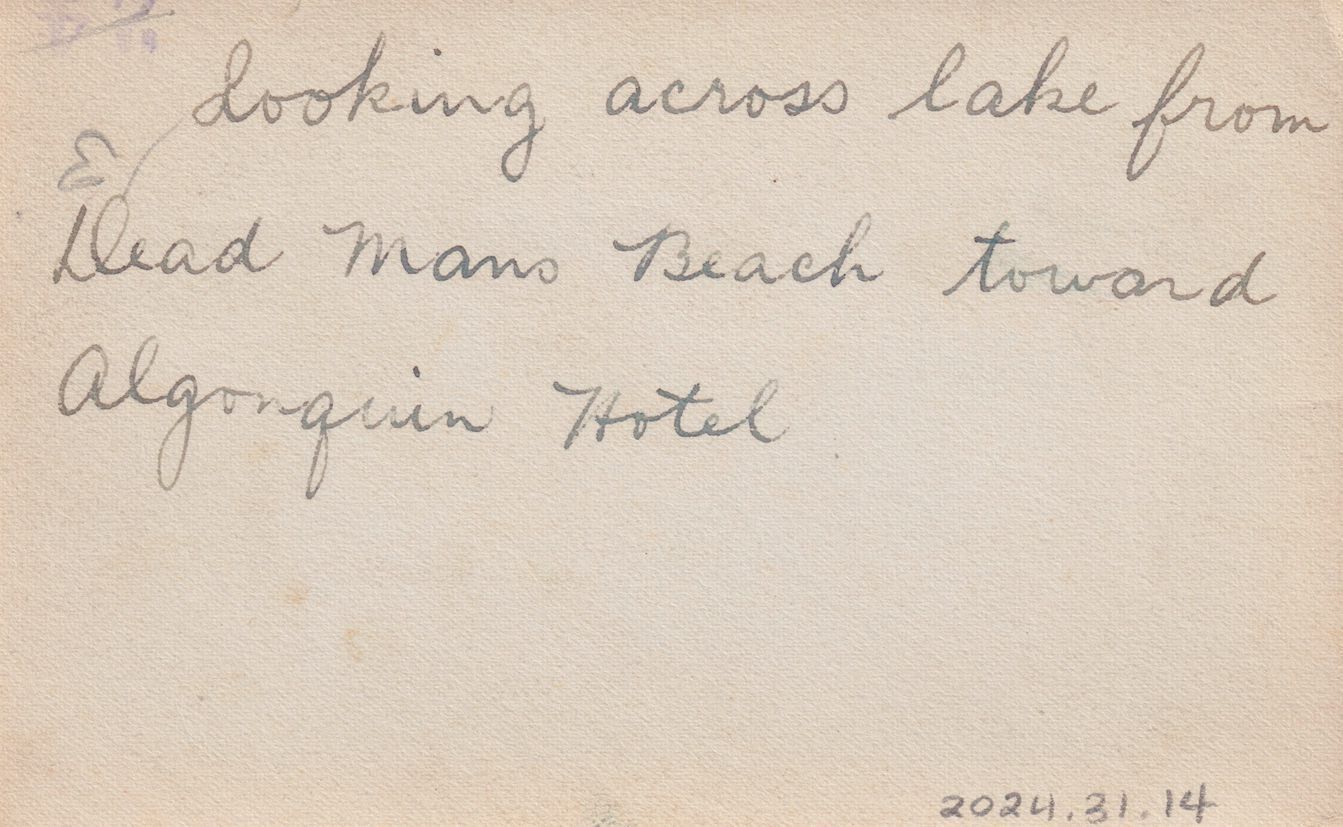 Looking across lake from
Dead Mans Beach toward
Algonquin Hotel
2024.31.14